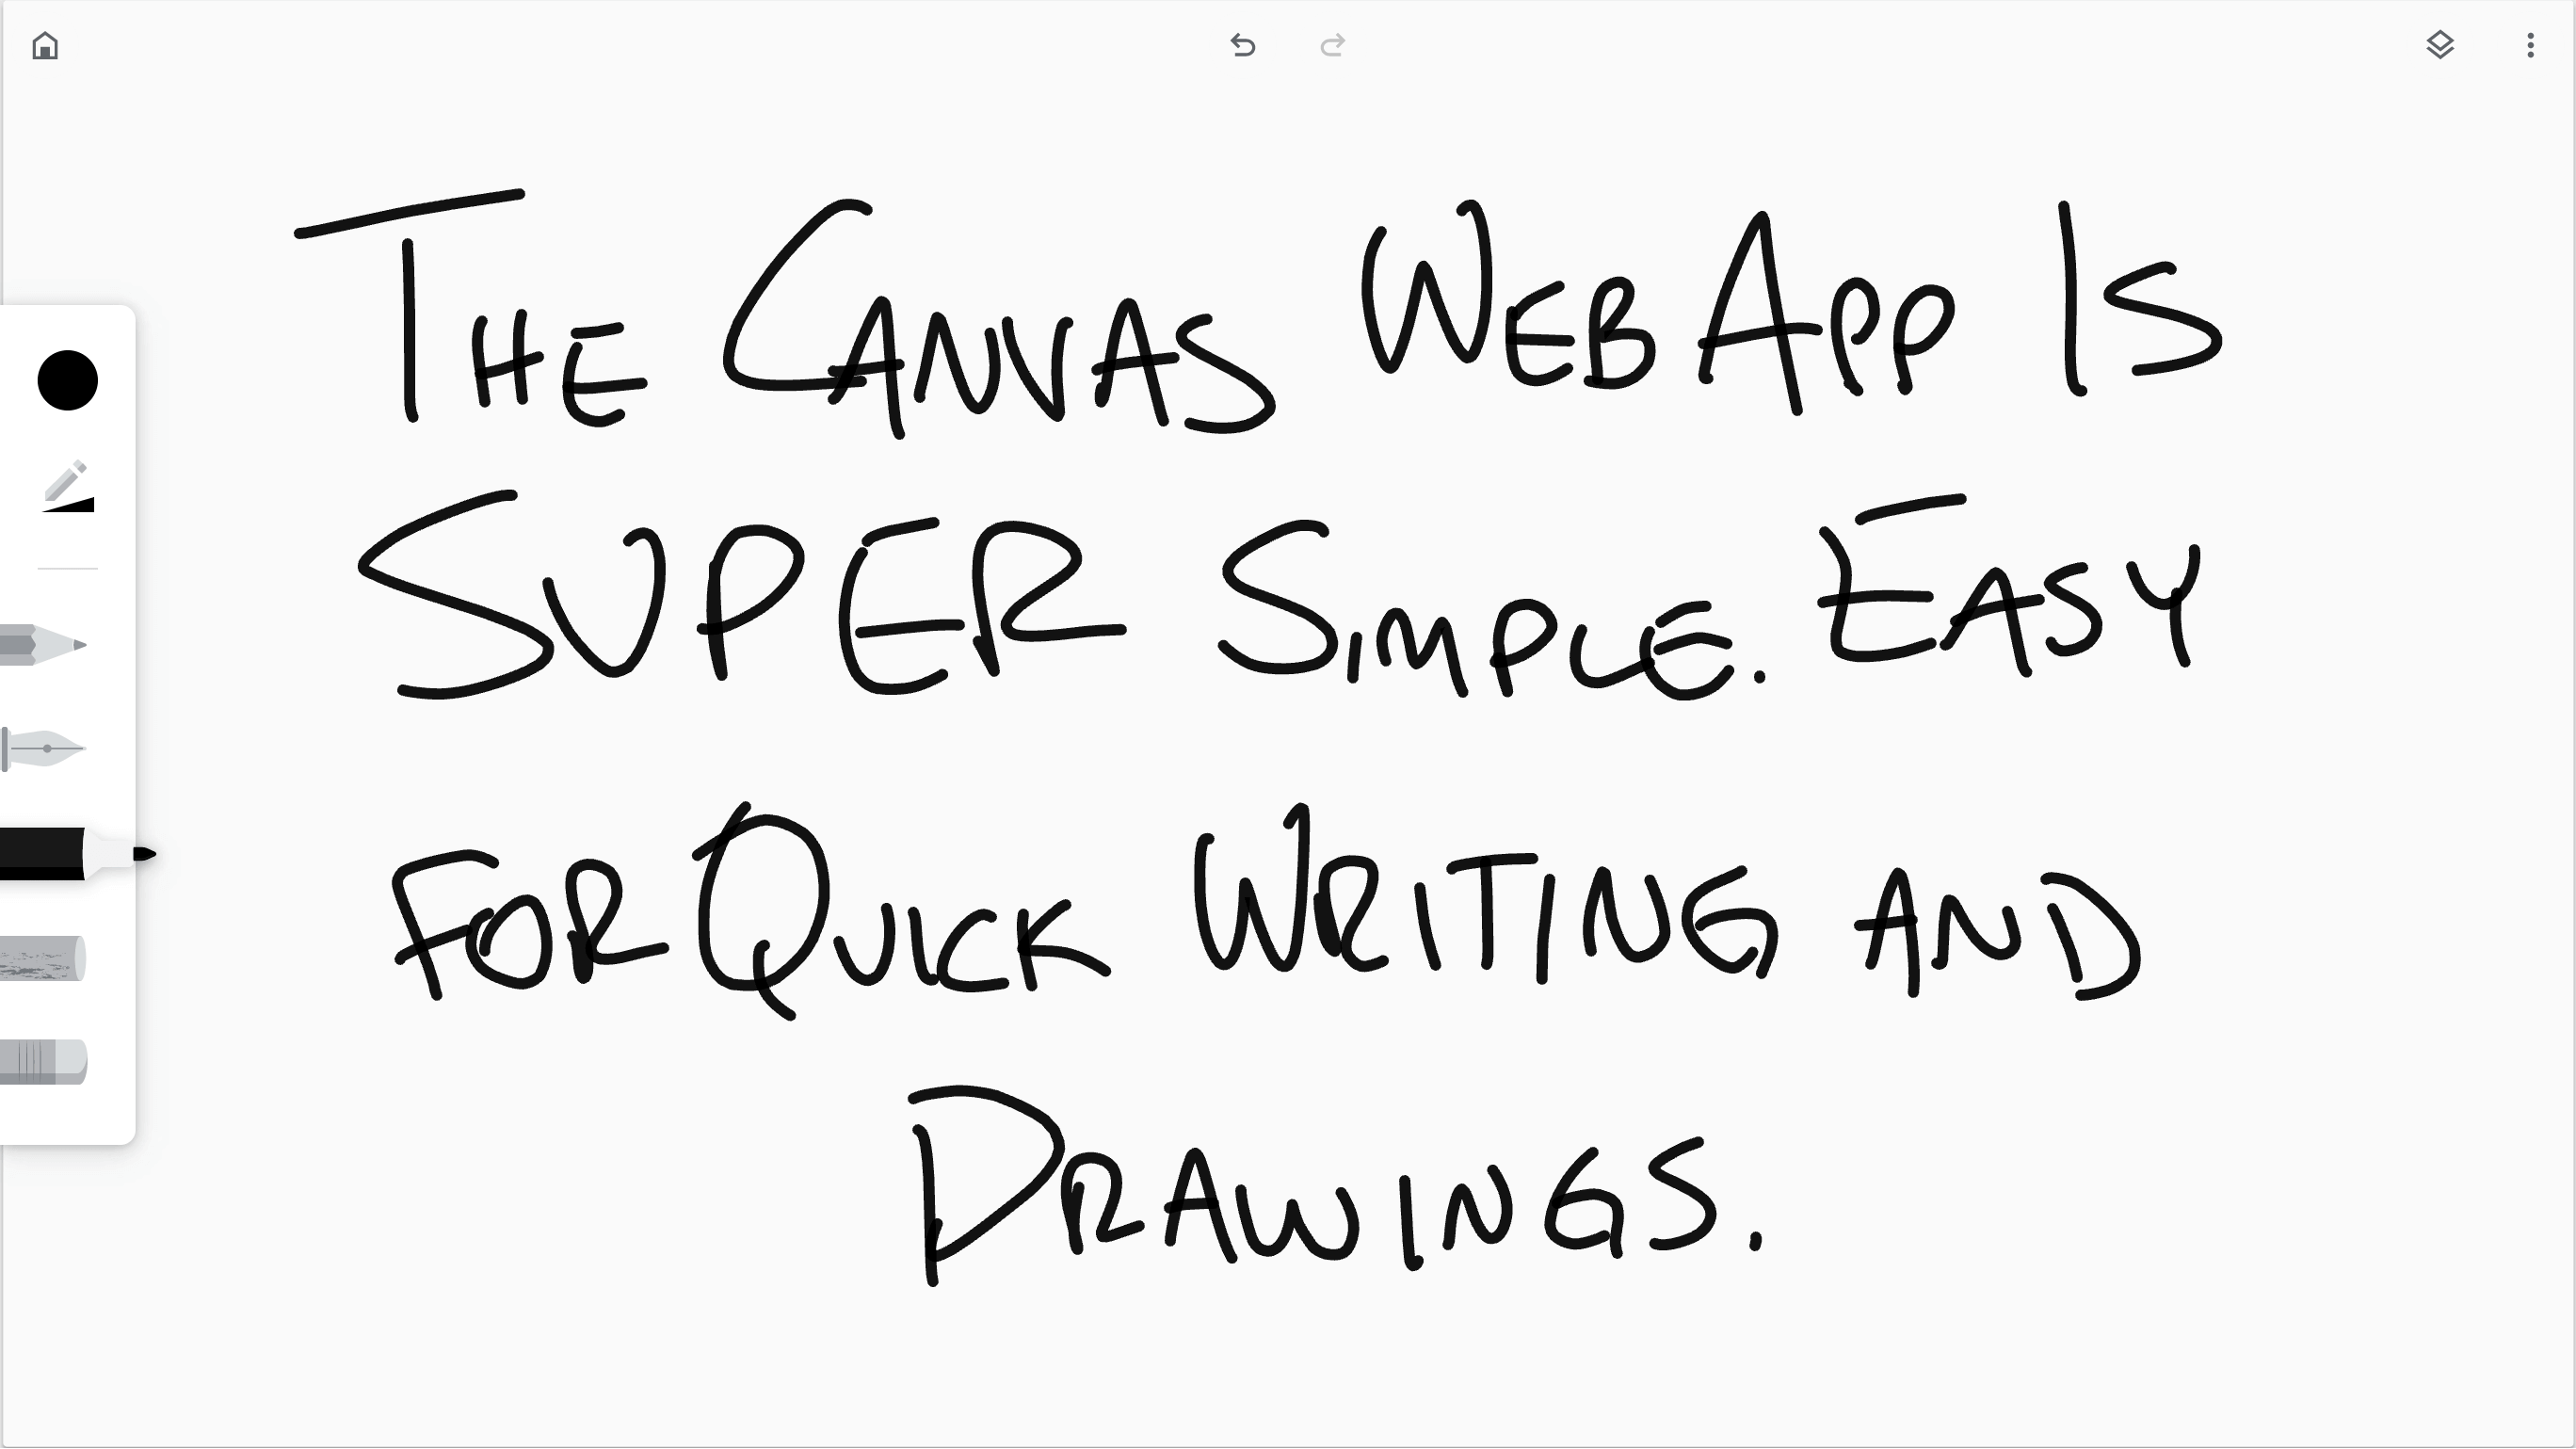 The Canvas Web App Is
Super Simple. Easy
for Quick Writing and
Drawings.